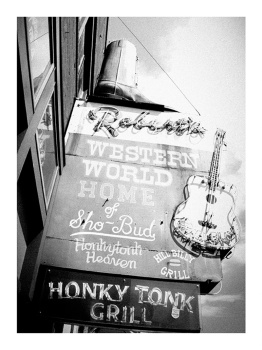 Robert's
WESTERN
WORLD
HOME
of
Sho-Bud
Honkytonk
Heaven
HILLBILLY
GRILL
HONKY TONK
GRILL